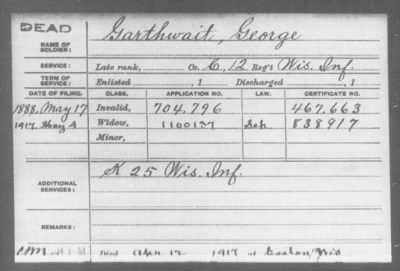 DEAD
NAME OF SOLDIER: Garthwait, George
SERVICE: Late rank, Co. C, 12 Reg't Wis. Inf.
TERM OF SERVICE: Enlisted , 1 Discharged , 1
DATE OF FILING. CLASS. APPLICATION NO. LAW. CERTIFICATE NO.
1888, May 17 Invalid, 704,796 467,663
1917, May 4 Widow, 1100137 838917
Minor,
ADDITIONAL SERVICES: K 25 Wis. Inf.
REMARKS:
Died 1917 at Wis